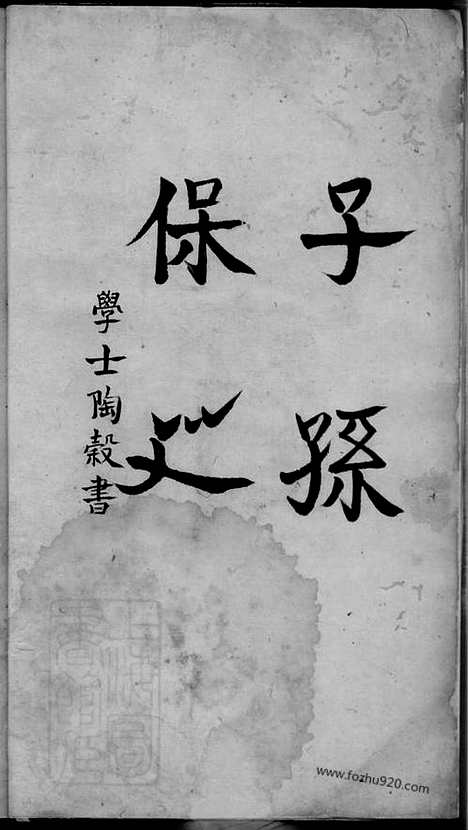 子孫
保之
學士陶穀書
www.fozhu920.com